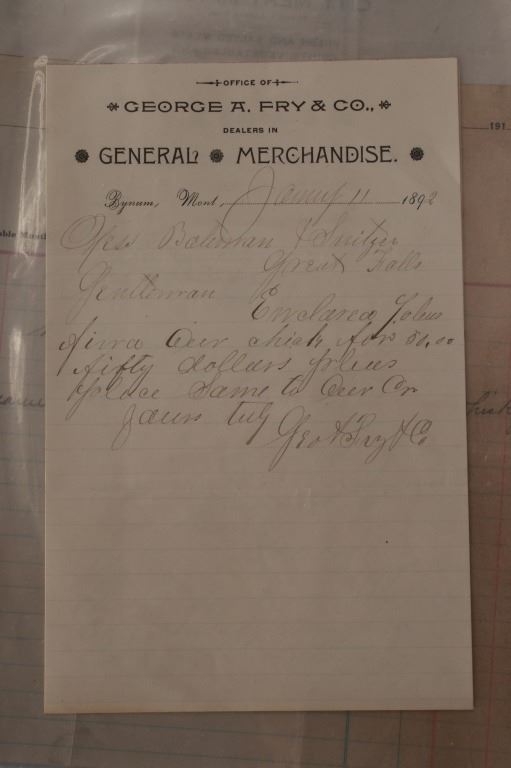 OFFICE OF
GEORGE A. FRY & CO.,
DEALERS IN
GENERAL MERCHANDISE.
Bynum, Mont, January 11 1892
Mess Bateman & Switzer
Great Falls
Gentleman
Enclosed pleas
find Our check for 50.00
fifty dollars pleas
place Same to Our Cr
yours truly
Geo A Fry & Co
191